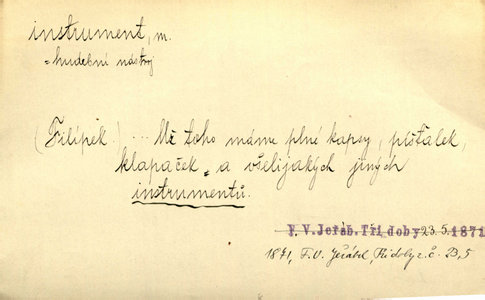 instrument, m.
= hudební nástroj
(Filípek:) ... Mě toho máme plné kapsy, píšťalek,
klapaček a všelijakých jiných
instrumentů.
F. V. Jeřáb. Tři doby 23.5. 1871
1871, F. V. Jeřábek,